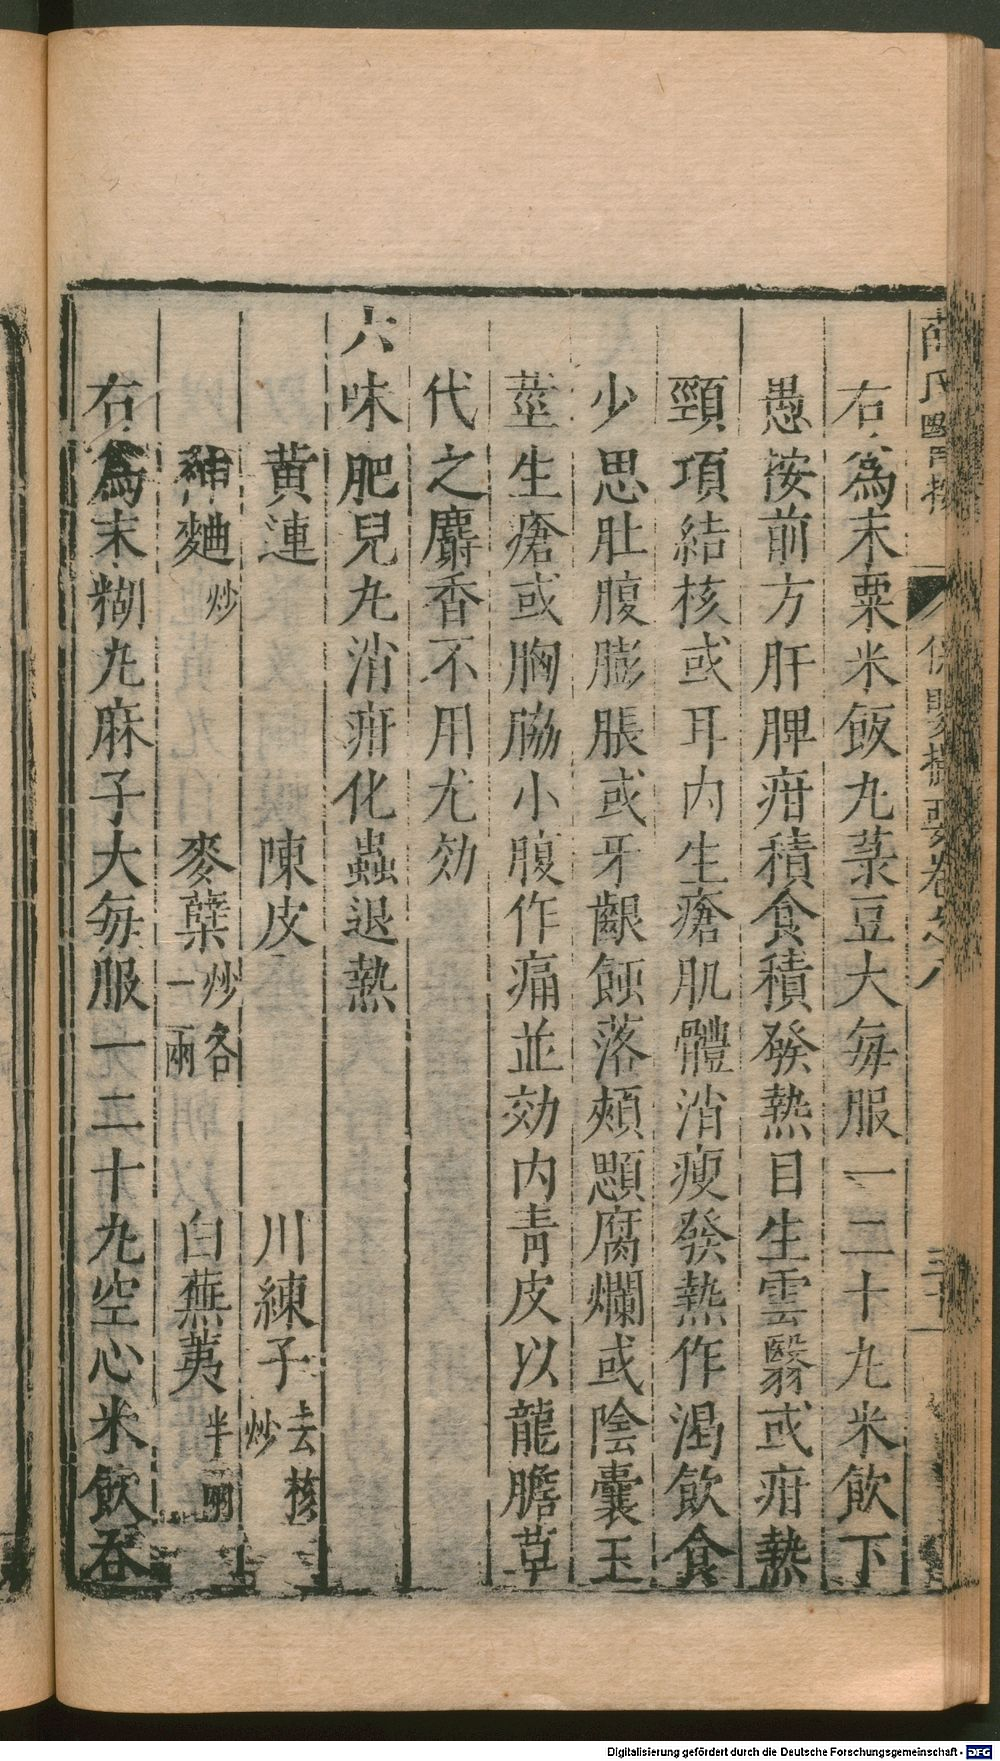 薛氏醫按 保嬰撮要卷之八 三十
右為末粟米飯丸菉豆大每服一二十丸米飲下
愚按前方肝脾疳積食積發熱目生雲翳或疳熱
頸項結核或耳內生瘡肌體消瘦發熱作渴飲食
少思肚腹膨脹或牙齦蝕落頰顋腐爛或陰囊玉
莖生瘡或胸脇小腹作痛並効內青皮以龍膽草
代之麝香不用尤効
六味肥兒丸消疳化蟲退熱
黃連 陳皮 川練子去核炒
神麯炒 麥蘗炒各一兩 白蕪荑半兩
右為末糊丸麻子大每服一二十丸空心米飲吞
Digitalisierung gefördert durch die Deutsche Forschungsgemeinschaft - DFG